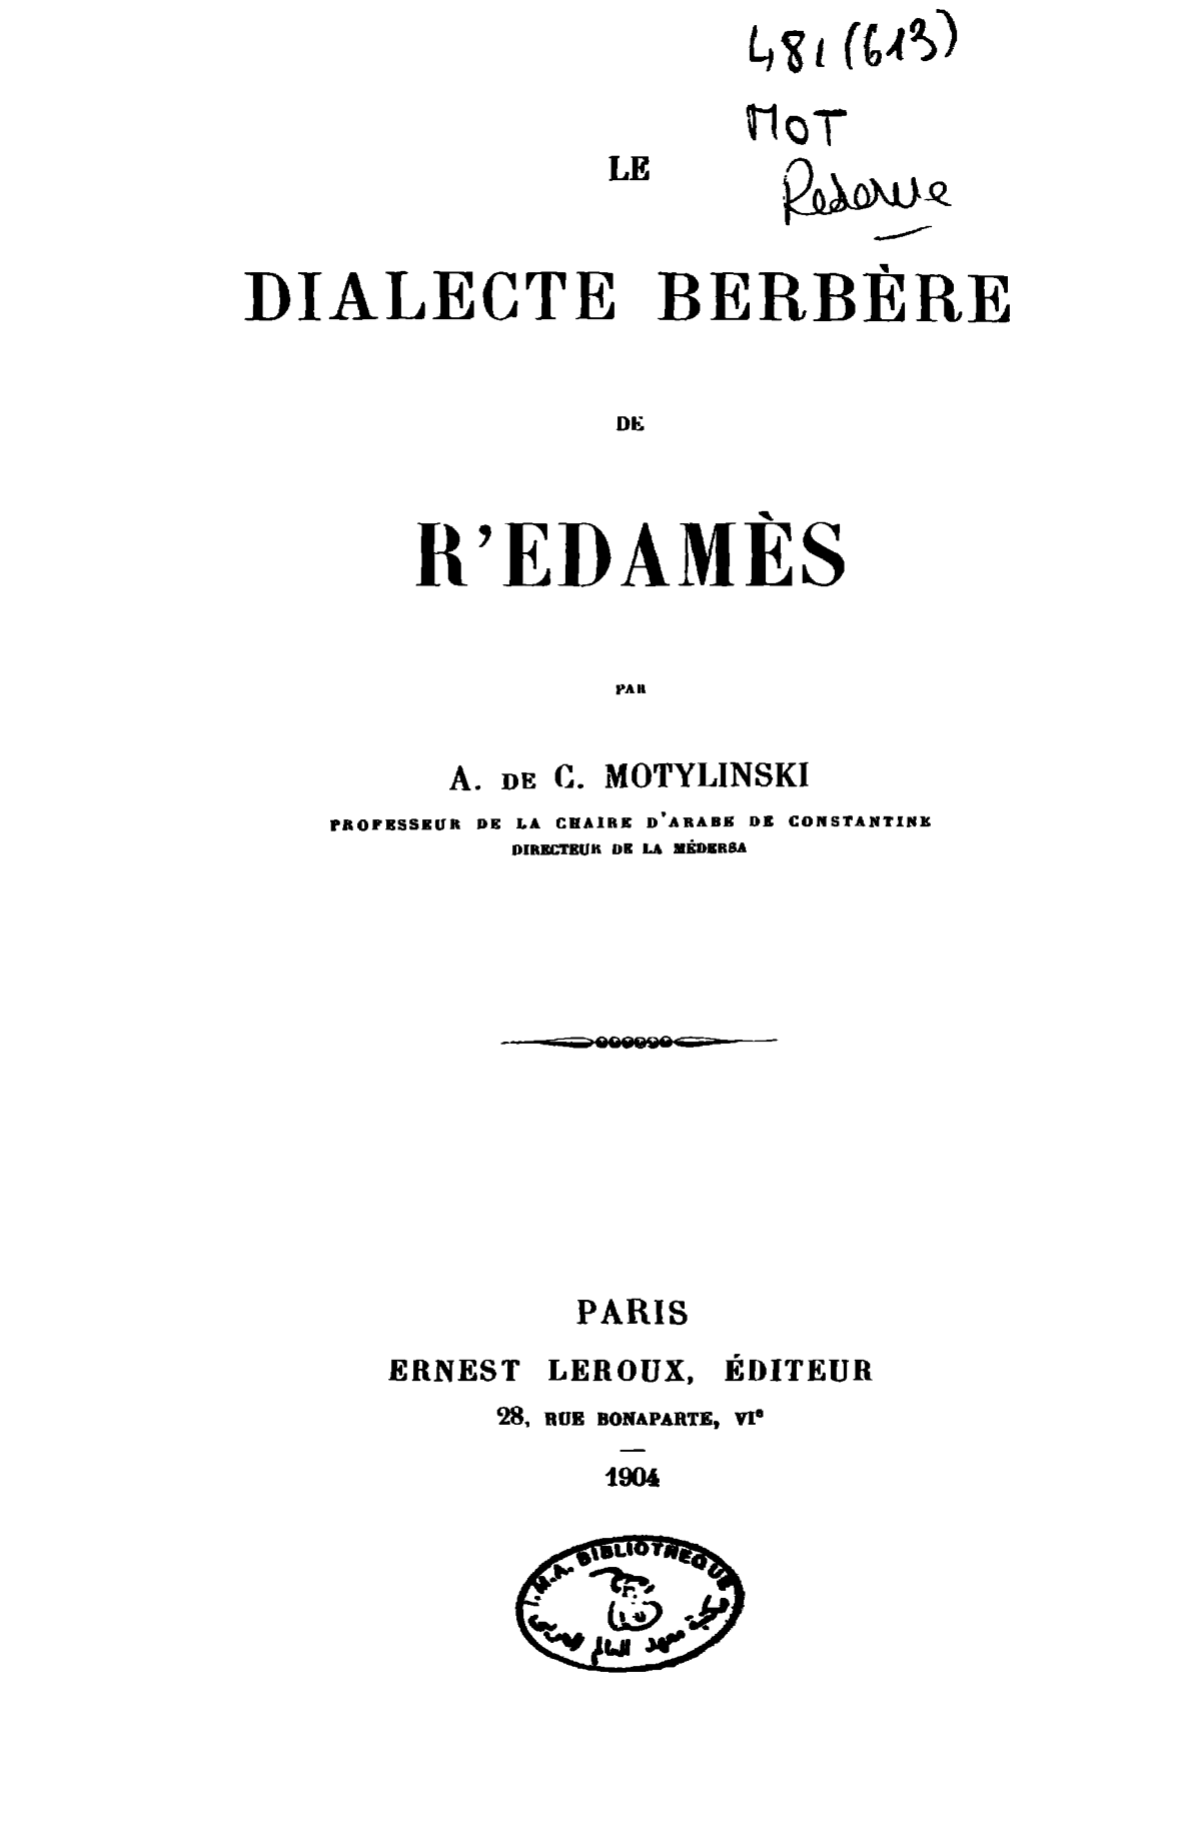 481(613)
MOT
Réserve
LE
DIALECTE BERBÈRE
DE
R'EDAMÈS
PAR
A. DE C. MOTYLINSKI
PROFESSEUR DE LA CHAIRE D'ARABE DE CONSTANTINE
DIRECTEUR DE LA MÉDERSA
PARIS
ERNEST LEROUX, ÉDITEUR
28, RUE BONAPARTE, VIe
1904
I.M.A. BIBLIOTHEQUE
مكتبة معهد العالم العربي